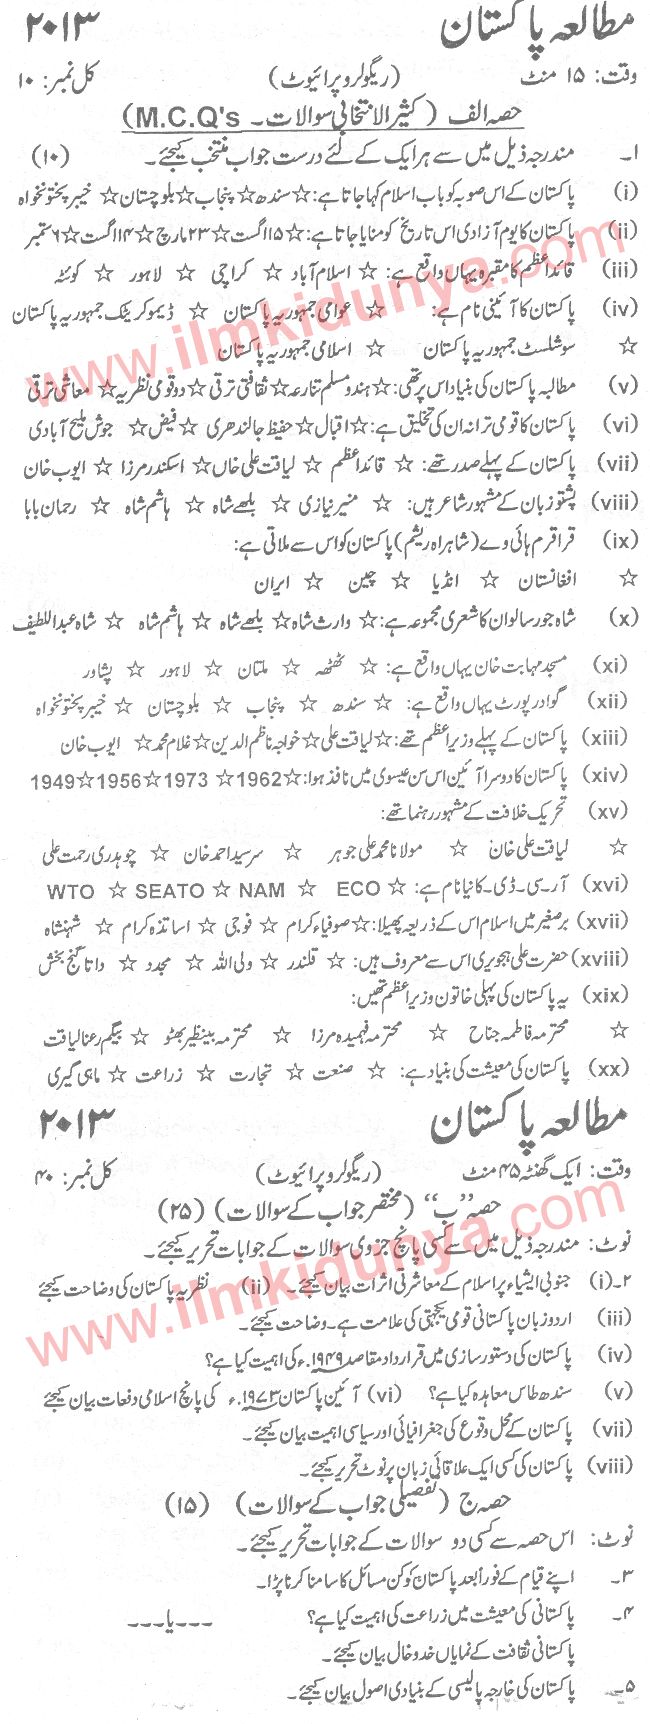 مطالعہ پاکستان ۲۰۱۳
وقت: ۱۵ منٹ (ریگولر و پرائیوٹ) کل نمبر: ۱۰
حصہ الف (کثیر الانتخابی سوالات۔ M.C.Q's)
۱۔ مندرجہ ذیل میں سے ہر ایک کے لئے درست جواب منتخب کیجئے۔ (۱۰)
(i) پاکستان کے اس صوبہ کو باب اسلام کہا جاتا ہے: ☆ سندھ ☆ پنجاب ☆ بلوچستان ☆ خیبر پختونخواہ
(ii) پاکستان کا یوم آزادی اس تاریخ کو منایا جاتا ہے: ☆ ۱۵ اگست ☆ ۲۳ مارچ ☆ ۱۴ اگست ☆ ۶ ستمبر
(iii) قائداعظم کا مقبرہ یہاں واقع ہے: ☆ اسلام آباد ☆ کراچی ☆ لاہور ☆ کوئٹہ
(iv) پاکستان کا آئینی نام ہے: ☆ عوامی جمہوریہ پاکستان ☆ ڈیموکریٹک جمہوریہ پاکستان
☆ سوشلسٹ جمہوریہ پاکستان ☆ اسلامی جمہوریہ پاکستان
(v) مطالبہ پاکستان کی بنیاد اس پر تھی: ☆ ہندو مسلم تنازعہ ☆ ثقافتی ترقی ☆ دو قومی نظریہ ☆ معاشی ترقی
(vi) پاکستان کا قومی ترانہ ان کی تخلیق ہے: ☆ اقبال ☆ حفیظ جالندھری ☆ فیض ☆ جوش ملیح آبادی
(vii) پاکستان کے پہلے صدر تھے: ☆ قائداعظم ☆ لیاقت علی خاں ☆ اسکندر مرزا ☆ ایوب خان
(viii) پشتو زبان کے مشہور شاعر ہیں: ☆ منیر نیازی ☆ بلھے شاہ ☆ ہاشم شاہ ☆ رحمان بابا
(ix) قراقرم ہائی وے (شاہراہ ریشم) پاکستان کو اس سے ملاتی ہے:
☆ افغانستان ☆ انڈیا ☆ چین ☆ ایران
(x) شاہ جو رسالو ان کا شعری مجموعہ ہے: ☆ وارث شاہ ☆ بلھے شاہ ☆ ہاشم شاہ ☆ شاہ عبداللطیف
(xi) مسجد مہابت خان یہاں واقع ہے: ☆ ٹھٹھہ ☆ ملتان ☆ لاہور ☆ پشاور
(xii) گوادر پورٹ یہاں واقع ہے: ☆ سندھ ☆ پنجاب ☆ بلوچستان ☆ خیبر پختونخواہ
(xiii) پاکستان کے پہلے وزیراعظم تھے: ☆ لیاقت علی ☆ خواجہ ناظم الدین ☆ غلام محمد ☆ ایوب خان
(xiv) پاکستان کا دوسرا آئین اس سن عیسوی میں نافذ ہوا: ☆ 1962 ☆ 1973 ☆ 1956 ☆ 1949
(xv) تحریک خلافت کے مشہور رہنما تھے:
☆ لیاقت علی خان ☆ مولانا محمد علی جوہر ☆ سرسید احمد خان ☆ چوہدری رحمت علی
(xvi) آر۔سی۔ڈی۔کا نیا نام ہے: ☆ ECO ☆ NAM ☆ SEATO ☆ WTO
(xvii) برصغیر میں اسلام اس کے ذریعہ پھیلا: ☆ صوفیاء کرام ☆ فوجی ☆ اساتذہ کرام ☆ شہنشاہ
(xviii) حضرت علی ہجویری اس سے معروف ہیں: ☆ قلندر ☆ ولی اللہ ☆ مجدد ☆ داتا گنج بخش
(xix) یہ پاکستان کی پہلی خاتون وزیراعظم تھیں:
☆ محترمہ فاطمہ جناح ☆ محترمہ فہمیدہ مرزا ☆ محترمہ بینظیر بھٹو ☆ بیگم رعنا لیاقت
(xx) پاکستان کی معیشت کی بنیاد ہے: ☆ صنعت ☆ تجارت ☆ زراعت ☆ ماہی گیری
مطالعہ پاکستان ۲۰۱۳
وقت: ایک گھنٹہ ۴۵ منٹ (ریگولر و پرائیوٹ) کل نمبر: ۴۰
حصہ ”ب“ (مختصر جواب کے سوالات) (۲۵)
نوٹ: مندرجہ ذیل میں سے کسی پانچ جزوی سوالات کے جوابات تحریر کیجئے۔
۲۔(i) جنوبی ایشیاء پر اسلام کے معاشرتی اثرات بیان کیجئے۔ (ii) نظریہ پاکستان کی وضاحت کیجئے
(iii) اردو زبان پاکستانی قومی یکجہتی کی علامت ہے۔ وضاحت کیجئے۔
(iv) پاکستان کی دستور سازی میں قرارداد مقاصد ۱۹۴۹ء کی اہمیت کیا ہے؟
(v) سندھ طاس معاہدہ کیا ہے؟ (vi) آئین پاکستان ۱۹۷۳ء کی پانچ اسلامی دفعات بیان کیجئے
(vii) پاکستان کے محل وقوع کی جغرافیائی اور سیاسی اہمیت بیان کیجئے۔
(viii) پاکستان کی کسی ایک علاقائی زبان پر نوٹ تحریر کیجئے۔
حصہ ج (تفصیلی جواب کے سوالات) (۱۵)
نوٹ: اس حصہ سے کسی دو سوالات کے جوابات تحریر کیجئے۔
۳۔ اپنے قیام کے فوراً بعد پاکستان کو کن مسائل کا سامنا کرنا پڑا۔
۴۔ پاکستانی کی معیشت میں زراعت کی اہمیت کیا ہے؟ ---یا---
پاکستانی ثقافت کے نمایاں خدوخال بیان کیجئے۔
۵۔ پاکستان کی خارجہ پالیسی کے بنیادی اصول بیان کیجئے۔
www.ilmkidunya.com
www.ilmkidunya.com